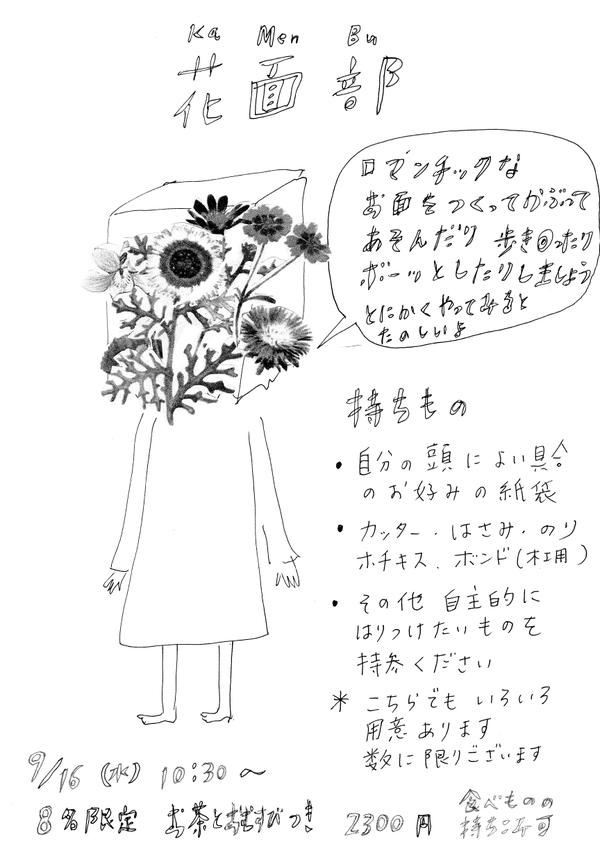 Ka Men Bu
花面部
ロマンチックな
お面をつくってかぶって
あそんだり 歩き回ったり
ボーッとしたりしましょう
とにかくやってみると
たのしいよ
持ちもの
・自分の頭によい具合
のお好みの紙袋
・カッター・はさみ・のり
ホチキス、ボンド(木工用)
・その他 自主的に
はりつけたいものを
持参ください
* こちらでも いろいろ
用意あります
数に限りございます
9/16 (水) 10:30〜
8名限定 お茶とおむすびつき 2300円
食べものの
持ちこみ可